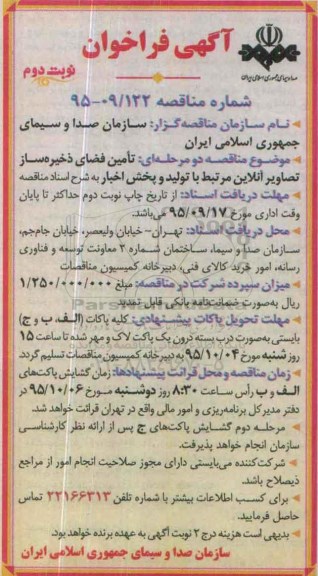 آگهی فراخوان
نوبت دوم
صدا و سیمای جمهوری اسلامی ایران
شماره مناقصه ۰۹/۱۲۲-۹۵
نام سازمان مناقصه‌گزار: سازمان صدا و سیمای
جمهوری اسلامی ایران
موضوع مناقصه دو مرحله‌ای: تأمین فضای ذخیره‌ساز
تصاویر آنلاین مرتبط با تولید و پخش اخبار به شرح اسناد مناقصه
مهلت دریافت اسناد: از تاریخ چاپ نوبت دوم حداکثر تا پایان
وقت اداری مورخ ۹۵/۰۹/۱۷ می‌باشد.
محل دریافت اسناد: تهران- خیابان ولیعصر، خیابان جام‌جم،
سازمان صدا و سیما، ساختمان شماره ۳ معاونت توسعه و فناوری
رسانه، امور خرید کالای فنی، دبیرخانه کمیسیون مناقصات
میزان سپرده شرکت در مناقصه: مبلغ ۱/۲۵۰/۰۰۰/۰۰۰
ریال به‌صورت ضمانت‌نامه بانکی قابل تمدید
مهلت تحویل پاکات پیشنهادی: کلیه پاکات (الف، ب و ج)
بایستی به‌صورت درب بسته درون یک پاکت لاک و مهر شده تا ساعت ۱۵
روز شنبه مورخ ۹۵/۱۰/۰۴ به دبیرخانه کمیسیون مناقصات تسلیم گردد.
زمان مناقصه و محل قرائت پیشنهادها: زمان گشایش پاکت‌های
الف و ب رأس ساعت ۸:۳۰ روز دوشنبه مورخ ۹۵/۱۰/۰۶ در
دفتر مدیرکل برنامه‌ریزی و امور مالی واقع در تهران قرائت خواهد شد.
مرحله دوم گشایش پاکت‌های ج پس از ارائه نظر کارشناسی
سازمان انجام خواهد پذیرفت.
شرکت‌کننده می‌بایستی دارای مجوز صلاحیت انجام امور از مراجع
ذیصلاح باشد.
برای کسب اطلاعات بیشتر با شماره تلفن ۲۲۱۶۶۳۱۳ تماس
حاصل فرمایید.
بدیهی است هزینه درج ۲ نوبت آگهی به عهده برنده خواهد بود.
سازمان صدا و سیمای جمهوری اسلامی ایران